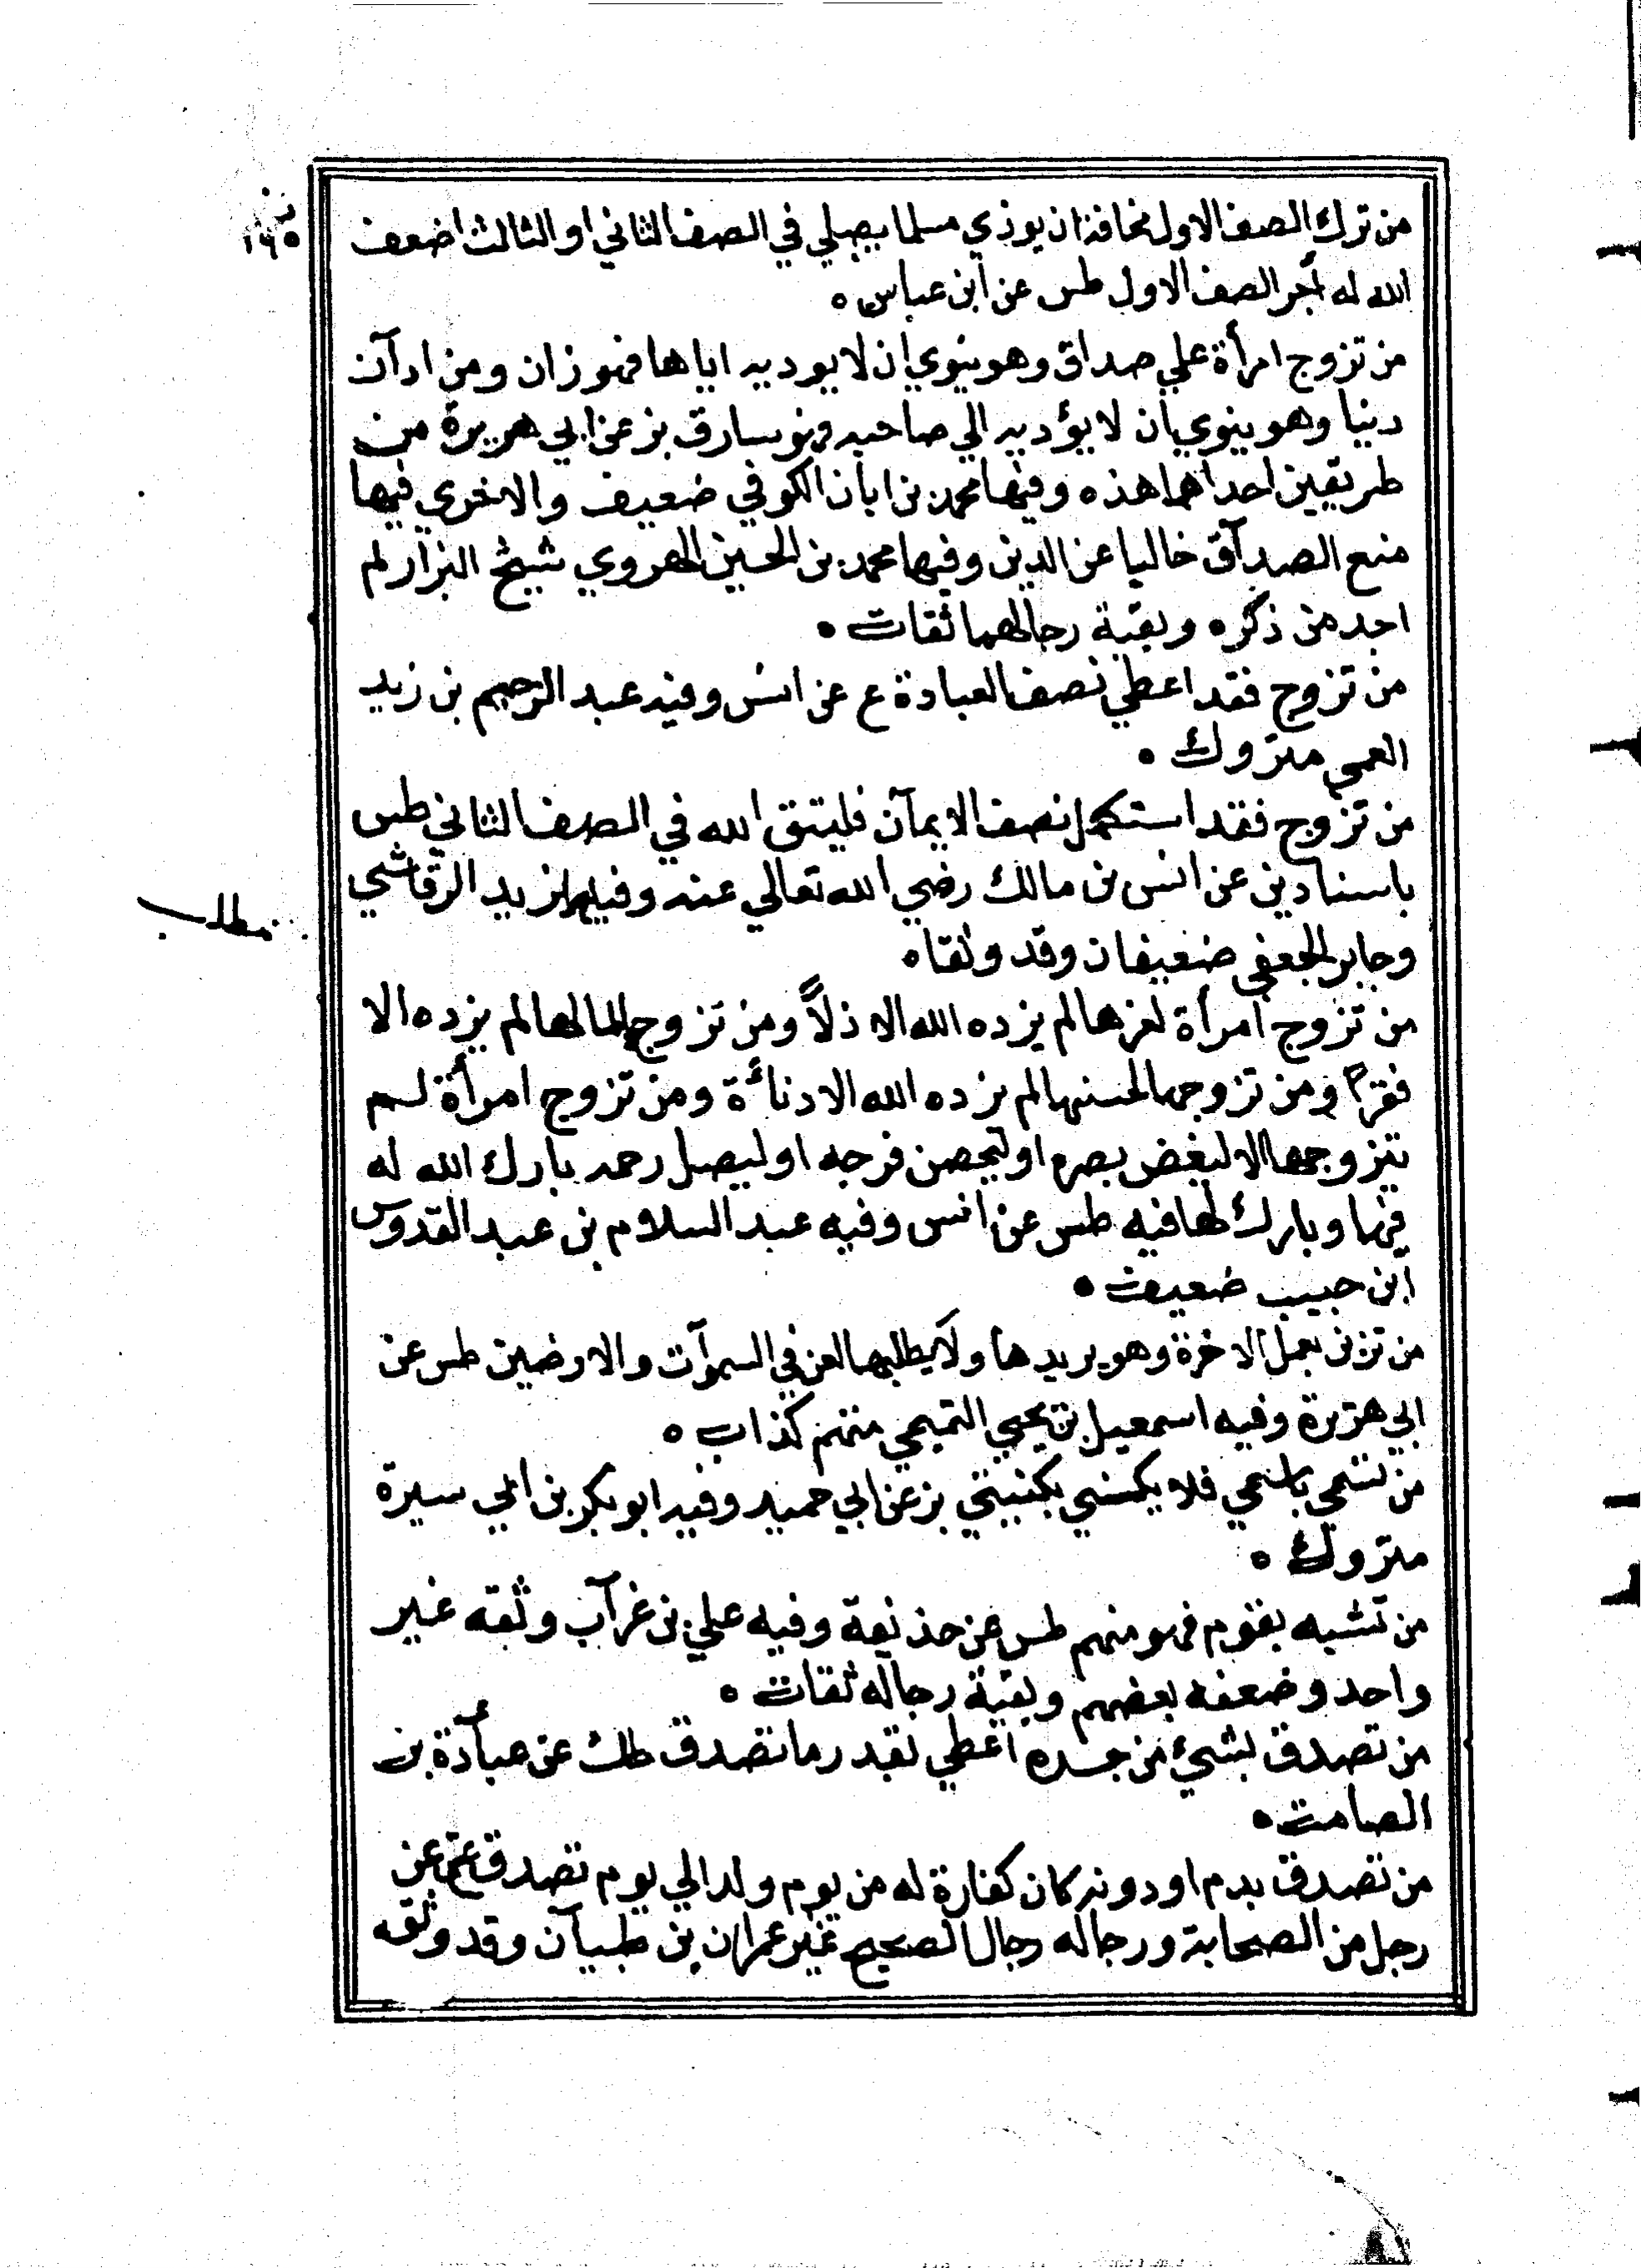 ١٦٥
من ترك الصف الاول مخافة ان يوذي مسلما يصلي في الصف الثاني او الثالث اضعف
الله له أجر الصف الاول طس عن ابن عباس ه
من تزوج امرأة علي صداق وهو ينوي ان لا يوديه اياها فهو زان ومن ادآن
دينا وهو ينوي ان لا يؤديه الي صاحبه فهو سارق بز عن ابي هريرة من
طريقين احداهما هذه وفيها محمد بن ابان الكوفي ضعيف والاخري فيها
منع الصدآق خاليا عن الدين وفيها محمد بن الحسين الهروي شيخ البزار لم
اجد من ذكره وبقية رجالهما ثقات ه
من تزوج فقد اعطي نصف العبادة ع عن انس وفيه عبد الرحيم بن زيد
العمي متروك ه
من تزوج فقد استكمل نصف الايمآن فليتق الله في الصف الثاني طس
باسنادين عن انس بن مالك رضي الله تعالي عنه وفيهما يزيد الرقاشي
مطلب
وجابر الجعفي ضعيفان وقد وثقا ه
من تزوج امرأة لعزها لم يزده الله الا ذلاً ومن تزوجها لمالها لم يزده الا
فقرا ومن تزوجها لحسنها لم يزده الله الا دنائة ومن تزوج امرأة لم
يتزوجها الا ليغض بصره او ليحصن فرجه او ليصل رحمه بارك الله له
فيها وبارك لها فيه طس عن انس وفيه عبد السلام بن عبد القدوس
ابن حبيب ضعيف ه
من تزين بعمل الاخرة وهو يريدها ولا يطلبها لعن في السموآت والارضين طس عن
ابي هريرة وفيه اسمعيل بن يحيي التميمي متهم كذاب ه
من تسمي باسمي فلا يكتني بكنيتي بز عن ابي حميد وفيه ابو بكر بن ابي سبرة
متروك ه
من تشبه بقوم فهو منهم طس عن حذيفة وفيه علي بن غرآب وثقه غير
واحد وضعفه بعضهم وبقية رجاله ثقات ه
من تصدق بشئ من جسده اعطي بقدر ما تصدق طك عن عبآدة بن
الصامت ه
من تصدق بدم او دونه كان كفارة له من يوم ولد الي يوم تصدق ع عن
رجل من الصحابة ورجاله رجال الصحيح غير عمران بن ظبيآن وقد وثقه